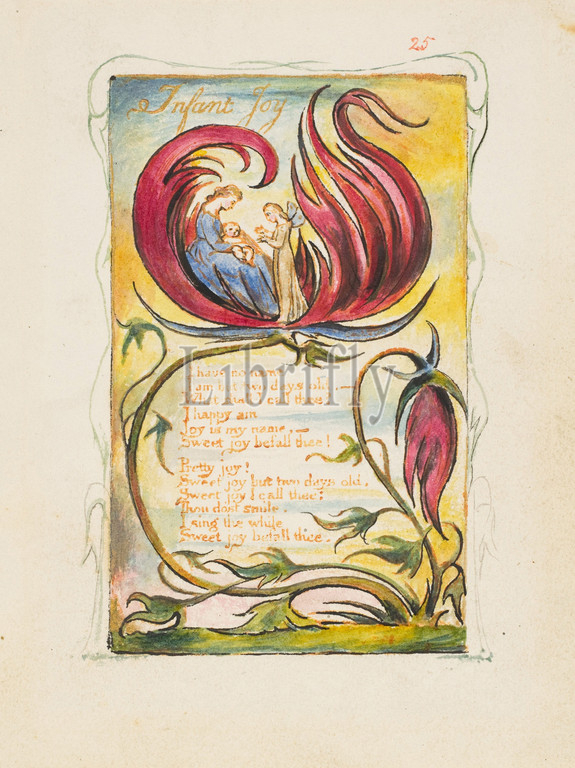 25
Infant Joy
I have no name
I am but two days old.—
What shall I call thee?
I happy am
Joy is my name,—
Sweet joy befall thee!
Pretty joy!
Sweet joy but two days old.
Sweet joy I call thee:
Thou dost smile.
I sing the while
Sweet joy befall thee.
Librifly